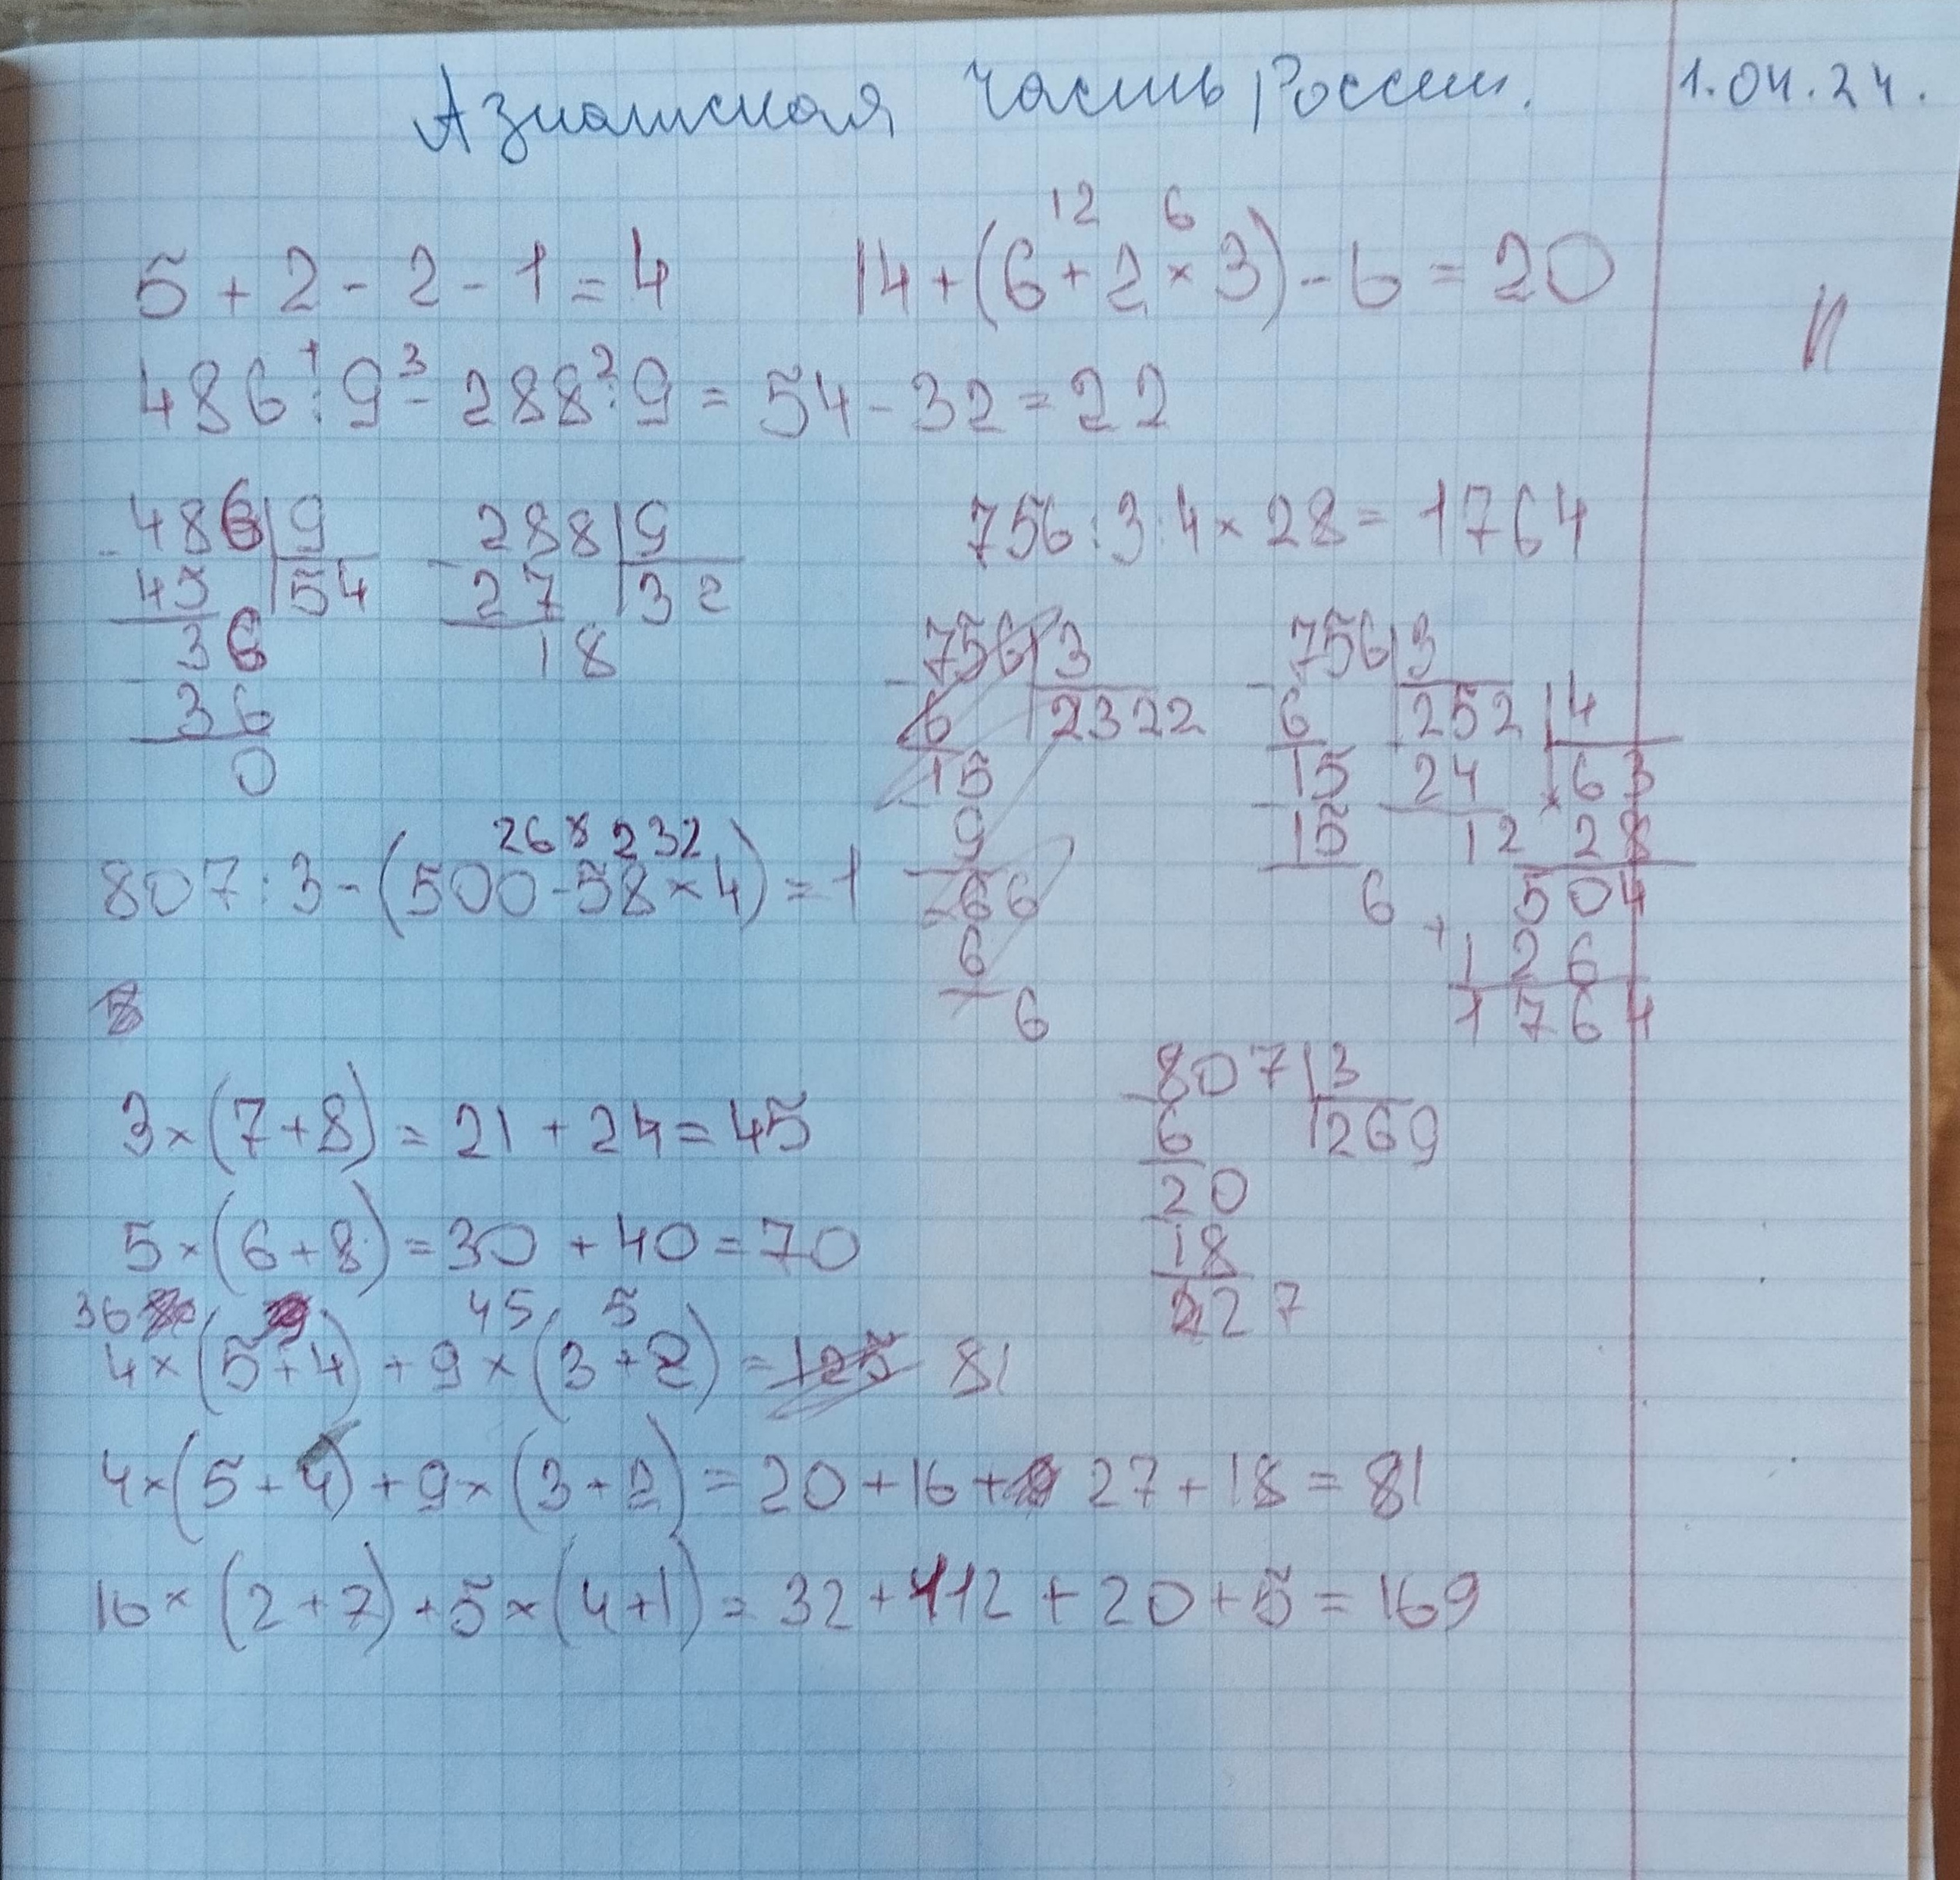 Азиатская часть России. 1.04.24.
12 6
5 + 2 - 2 - 1 = 4 14 + (6 + 2 × 3) - 6 = 20
1 3 2
486 : 9 - 288 : 9 = 54 - 32 = 22
486 | 9 288 | 9 756 : 3 : 4 × 28 = 1764
- 45 | 54 - 27 | 32
36 18
- 36
0
756 | 3
- 6 | 2322
15
9
66
6
6
756 | 3
- 6 | 252 | 4
15 24 | 63
- 15 12 × 28
6 504
+ 126
1764
268 232
807 : 3 - (500 - 58 × 4) = 1
807 | 3
- 6 | 269
20
18
27
3 × (7 + 8) = 21 + 24 = 45
5 × (6 + 8) = 30 + 40 = 70
36 45 5
4 × (5 + 4) + 9 × (3 + 2) = 125 81
4 × (5 + 4) + 9 × (3 + 2) = 20 + 16 + 27 + 18 = 81
16 × (2 + 7) + 5 × (4 + 1) = 32 + 112 + 20 + 5 = 169